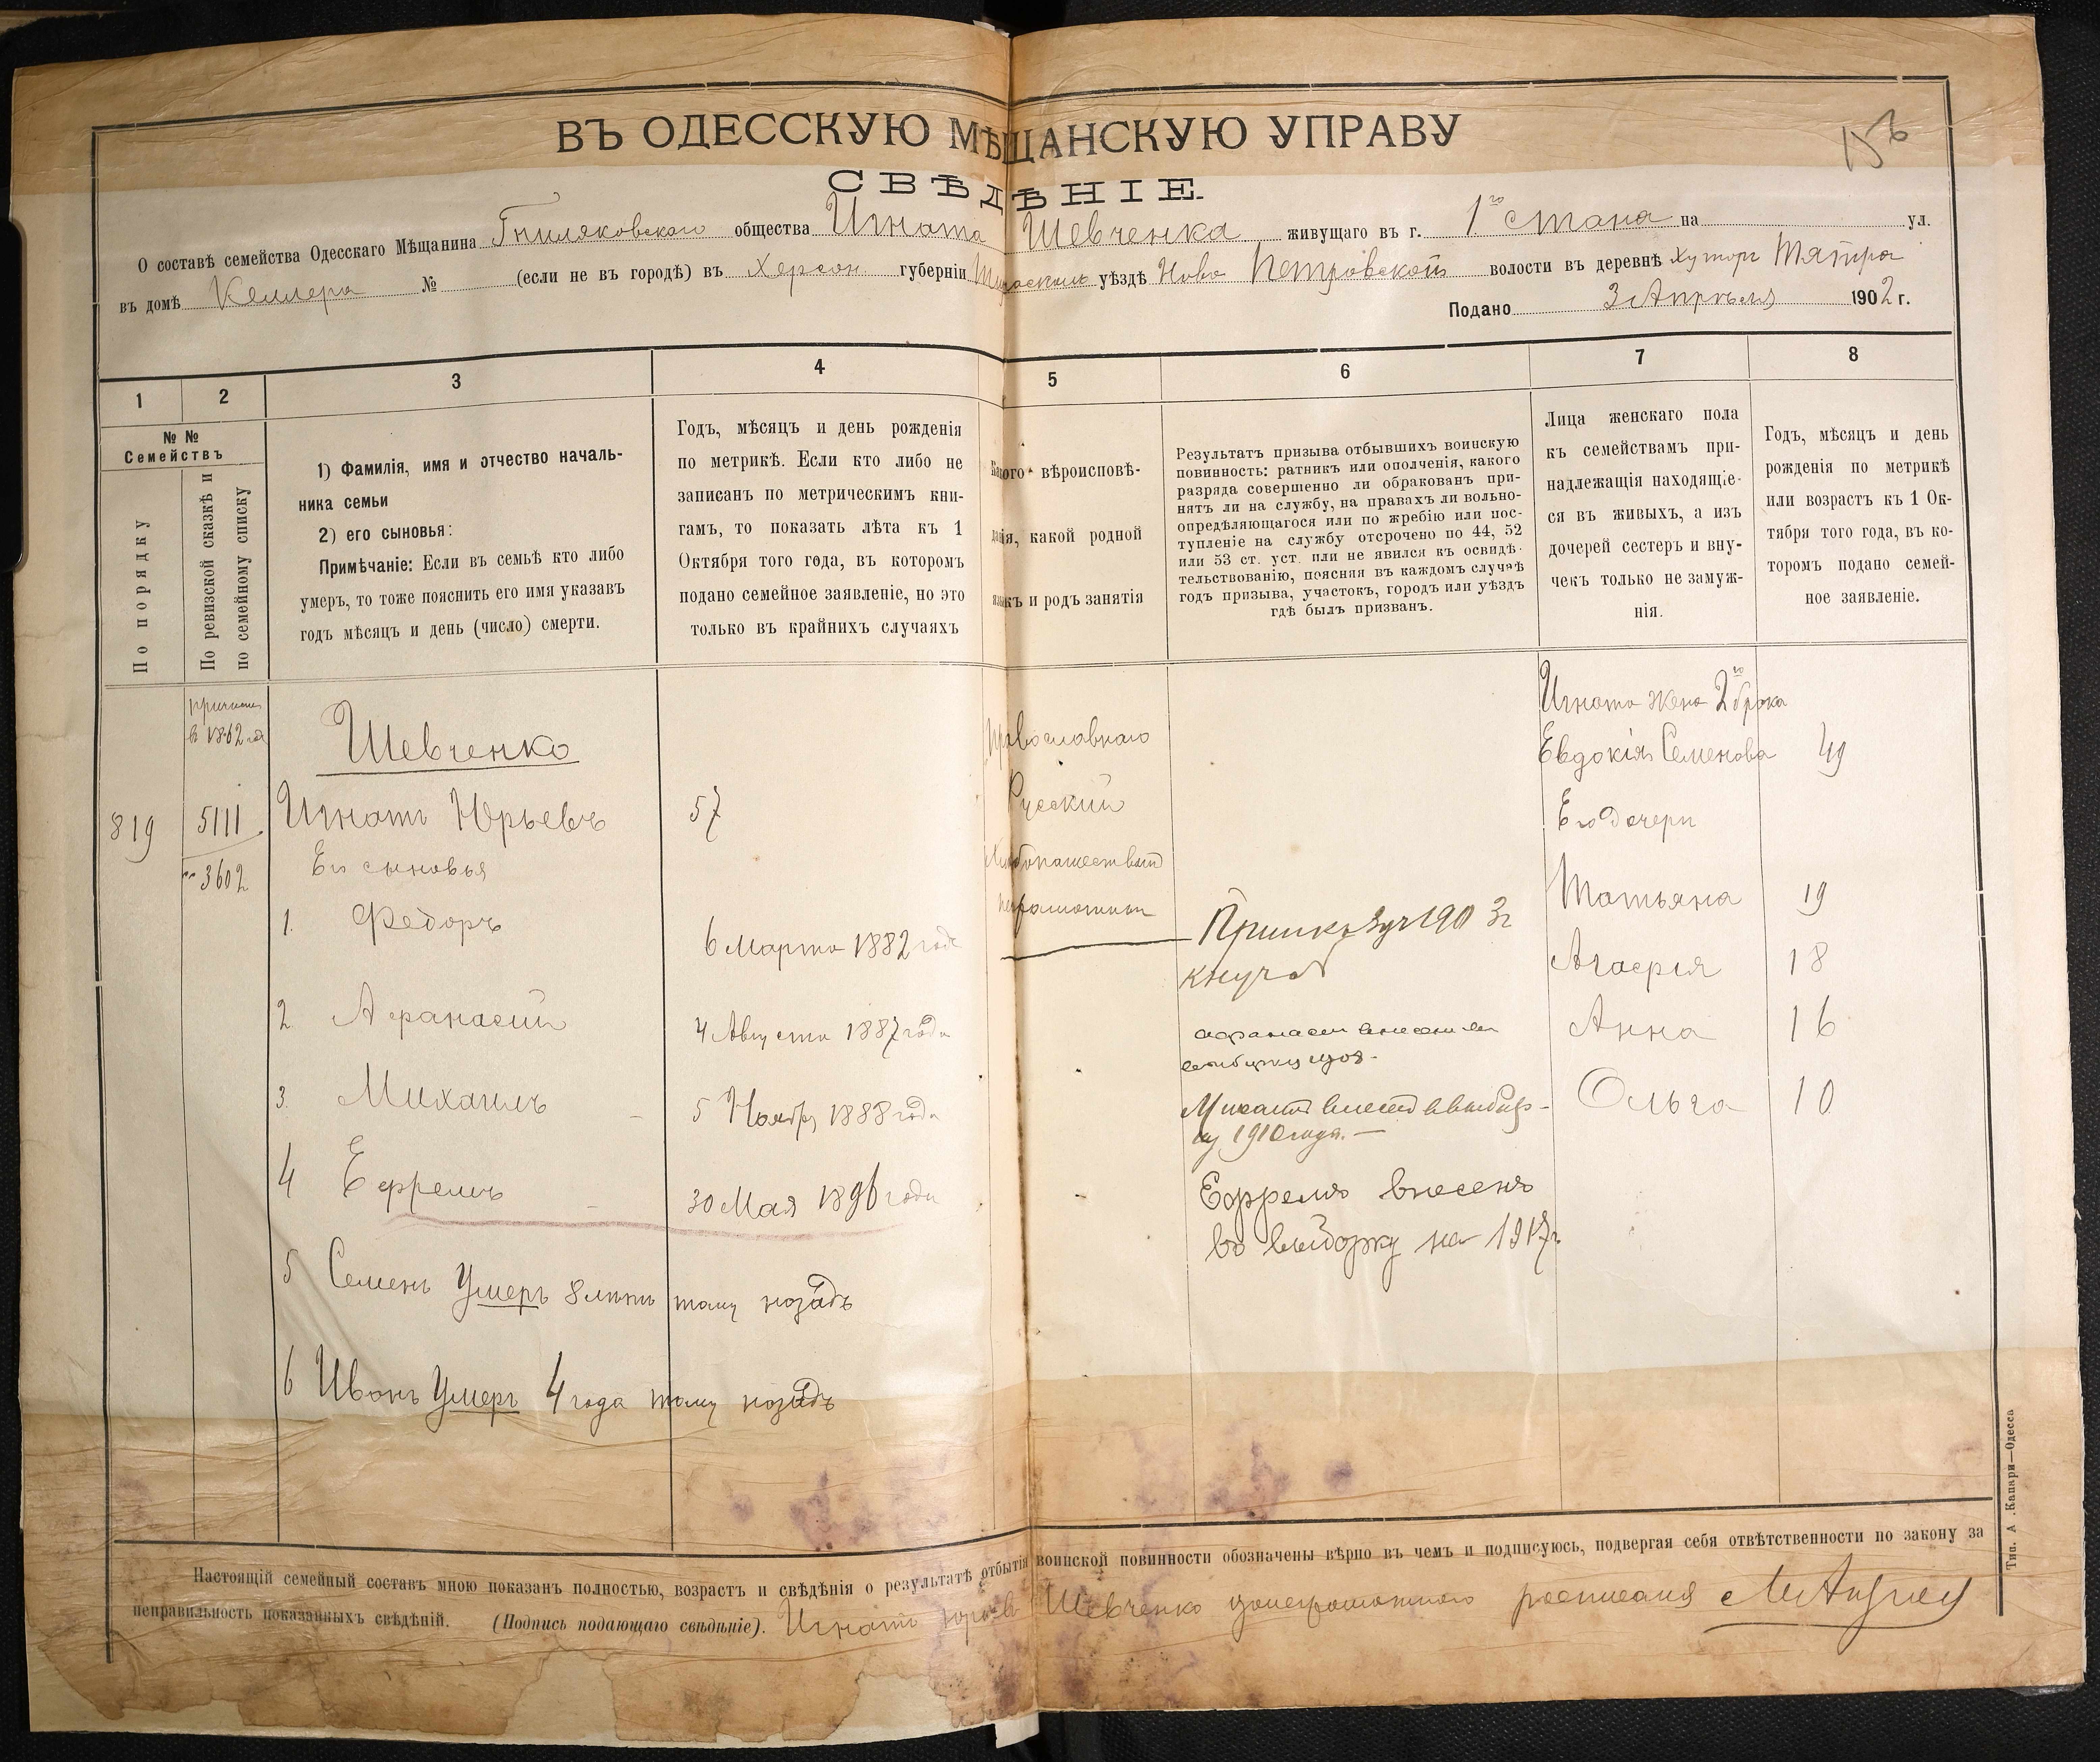 ВЪ ОДЕССКУЮ МѢЩАНСКУЮ УПРАВУ
СВѢДѢНІЕ.
О составѣ семейства Одесскаго Мѣщанина Гниляковскаго общества Игната Шевченка живущаго въ г. 1го стана на ул.
въ домѣ Келлера № (если не въ городѣ) въ Херсон. губерніи уѣздѣ Ново Петровской волости въ деревнѣ Хуторъ
Подано 3 Апрѣля 1902 г.
1 2 3 4 5 6 7 8
№ №
Семействъ
По порядку
По ревизской сказкѣ и
по семейному списку
1) Фамилія, имя и отчество началь-
ника семьи
2) его сыновья:
Примѣчаніе: Если въ семьѣ кто либо
умеръ, то тоже пояснить его имя указавъ
годъ мѣсяцъ и день (число) смерти.
Годъ, мѣсяцъ и день рожденія
по метрикѣ. Если кто либо не
записанъ по метрическимъ кни-
гамъ, то показать лѣта къ 1
Октября того года, въ которомъ
подано семейное заявленіе, но это
только въ крайнихъ случаяхъ
Какого вѣроисповѣ-
данія, какой родной
языкъ и родъ занятія
Результатъ призыва отбывшихъ воинскую
повинность: ратникъ или ополченія, какого
разряда совершенно ли обракованъ при-
нятъ ли на службу, на правахъ ли вольно-
опредѣляющагося или по жребію или пос-
тупленіе на службу отсрочено по 44, 52
или 53 ст. уст. или не явился къ освидѣ-
тельствованію, поясняя въ каждомъ случаѣ
годъ призыва, участокъ, городъ или уѣздъ
гдѣ былъ призванъ.
Лица женскаго пола
къ семействамъ при-
надлежащія находящіе-
ся въ живыхъ, а изъ
дочерей сестеръ и вну-
чекъ только не замуж-
нія.
Годъ, мѣсяцъ и день
рожденія по метрикѣ
или возрастъ къ 1 Ок-
тября того года, въ ко-
торомъ подано семей-
ное заявленіе.
в 1862 год
Шевченко
Православнаго
Игната жена 2го брака
Евдокія Семенова 49
819 5111 Игнатъ Юрьевъ 57 Русскій
Его дочери
3602 Его сыновья
Хлебопашествомъ
неграмотны
Татьяна 19
1. Федоръ 6 Марта 1882 года
Агафія 18
2. Афанасій 4 Августа 1887 года
Афанасій внесенъ въ
выборку 1908.
Анна 16
3. Михаилъ 5 Ноябр 1888 года
Михаилъ внесенъ в выбор-
ку 1910 года.
Ольга 10
4 Ефремъ 30 Мая 1896 года
Ефремъ внесенъ
въ выборку на 1917г.
5 Семенъ Умеръ 8 летъ тому назадъ
6 Иванъ Умеръ 4 года тому назадъ
Настоящій семейный составъ мною показанъ полностью, возрастъ и свѣдѣнія о результатѣ отбытія воинской повинности обозначены вѣрно въ чемъ и подписуюсь, подвергая себя отвѣтственности по закону за
неправильность показанныхъ свѣдѣній. (Подпись подающаго свѣдѣніе). Игнатъ Юрьевъ Шевченко
Тип. А. Капари—Одесса